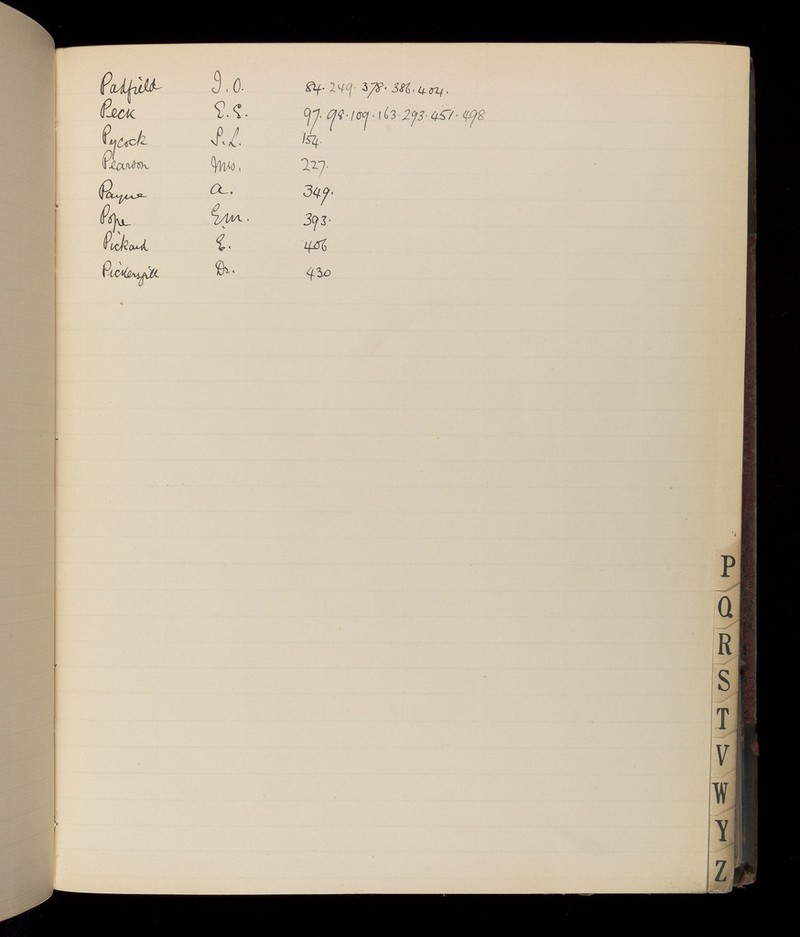 Padfield I. O. 84. 249. 378. 386. 404.
Peck E. E. 97. 98. 109. 163 293. 451. 498
Pycock P. L. 154.
Pearson Mrs. 227.
Payne A. 349.
Pope Em. 393.
Pickard E. 406
Pickersgill Dr. 430
P
Q
R
S
T
V
W
Y
Z